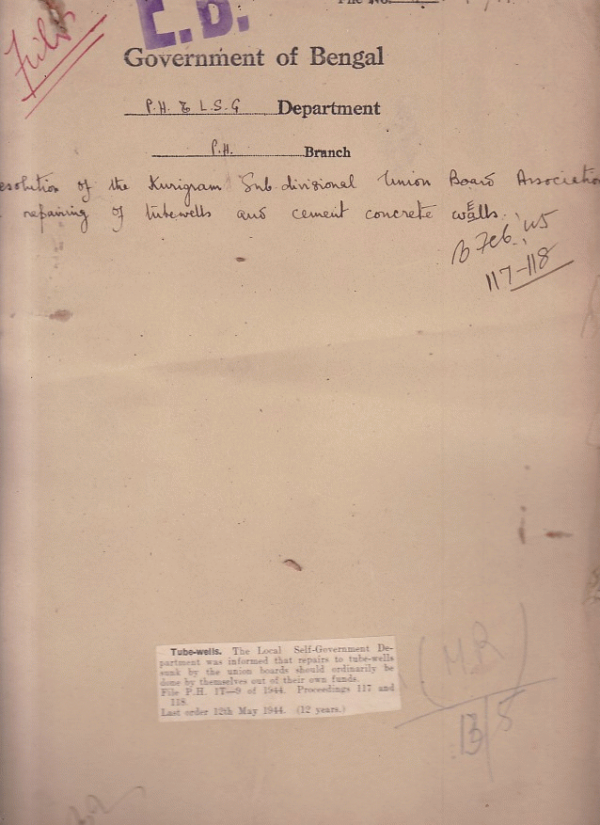 File No.
E.B.
File
Government of Bengal
P.H. & L.S.G Department
P.H. Branch
esolution of the Kurigram Sub divisional Union Board Association
repairing of tubewells and cement concrete wells.
B Feb. '45
117-118
Tube-wells. The Local Self-Government De-
partment was informed that repairs to tube-wells
sunk by the union boards should ordinarily be
done by themselves out of their own funds.
File P.H. 1T—9 of 1944. Proceedings 117 and
118.
Last order 12th May 1944. (12 years.)
(M.R)
B 5